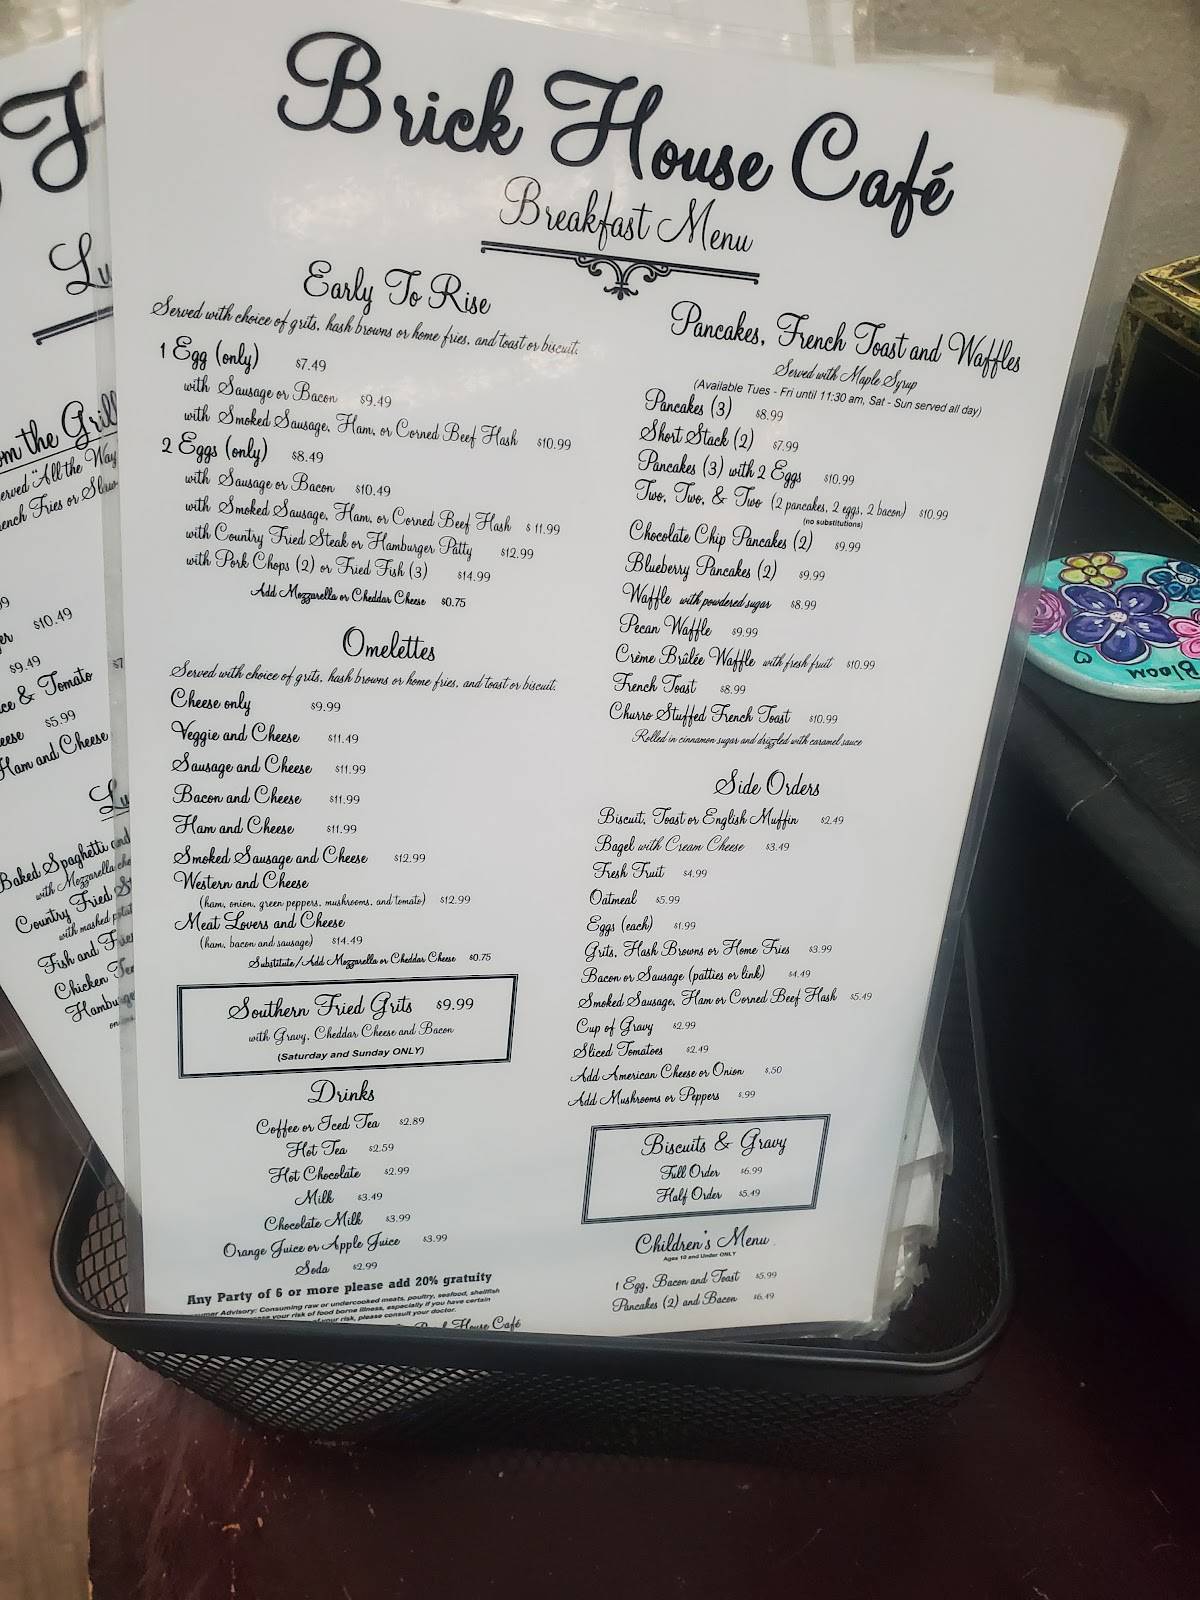 Brick House Café
Breakfast Menu
Early To Rise
Served with choice of grits, hash browns or home fries, and toast or biscuit.
1 Egg (only) $7.49
with Sausage or Bacon $9.49
with Smoked Sausage, Ham, or Corned Beef Hash $10.99
2 Eggs (only) $8.49
with Sausage or Bacon $10.49
with Smoked Sausage, Ham, or Corned Beef Hash $11.99
with Country Fried Steak or Hamburger Patty $12.99
with Pork Chops (2) or Fried Fish (3) $14.99
Add Mozzarella or Cheddar Cheese $0.75
Omelettes
Served with choice of grits, hash browns or home fries, and toast or biscuit.
Cheese only $9.99
Veggie and Cheese $11.49
Sausage and Cheese $11.99
Bacon and Cheese $11.99
Ham and Cheese $11.99
Smoked Sausage and Cheese $12.99
Western and Cheese
(ham, onion, green peppers, mushrooms, and tomato) $12.99
Meat Lovers and Cheese
(ham, bacon and sausage) $14.49
Substitute/Add Mozzarella or Cheddar Cheese $0.75
Southern Fried Grits $9.99
with Gravy, Cheddar Cheese and Bacon
(Saturday and Sunday ONLY)
Drinks
Coffee or Iced Tea $2.89
Hot Tea $2.59
Hot Chocolate $2.99
Milk $3.49
Chocolate Milk $3.99
Orange Juice or Apple Juice $3.99
Soda $2.99
Any Party of 6 or more please add 20% gratuity
sumer Advisory: Consuming raw or undercooked meats, poultry, seafood, shellfish
your risk of food borne illness, especially if you have certain
your risk, please consult your doctor.
Brick House Café
Pancakes, French Toast and Waffles
Served with Maple Syrup
(Available Tues - Fri until 11:30 am, Sat - Sun served all day)
Pancakes (3) $8.99
Short Stack (2) $7.99
Pancakes (3) with 2 Eggs $10.99
Two, Two, & Two (2 pancakes, 2 eggs, 2 bacon) $10.99
(no substitutions)
Chocolate Chip Pancakes (2) $9.99
Blueberry Pancakes (2) $9.99
Waffle with powdered sugar $8.99
Pecan Waffle $9.99
Crème Brûlée Waffle with fresh fruit $10.99
French Toast $8.99
Churro Stuffed French Toast $10.99
Rolled in cinnamon sugar and drizzled with caramel sauce
Side Orders
Biscuit, Toast or English Muffin $2.49
Bagel with Cream Cheese $3.49
Fresh Fruit $4.99
Oatmeal $5.99
Eggs (each) $1.99
Grits, Hash Browns or Home Fries $3.99
Bacon or Sausage (patties or link) $4.49
Smoked Sausage, Ham or Corned Beef Hash $5.49
Cup of Gravy $2.99
Sliced Tomatoes $2.49
Add American Cheese or Onion $.50
Add Mushrooms or Peppers $.99
Biscuits & Gravy
Full Order $6.99
Half Order $5.49
Children's Menu
Ages 10 and Under ONLY
1 Egg, Bacon and Toast $5.99
Pancakes (2) and Bacon $6.49
Lu
om the Grill
erved "All the Way
ench Fries or Slaw
$10.49
$9.49
ce & Tomato
eese $5.99
Ham and Cheese
Lu
Baked Spaghetti and
with Mozzarella che
Country Fried St
with mashed potat
Fish and Fries
Chicken Ten
Hamburge
Bloom